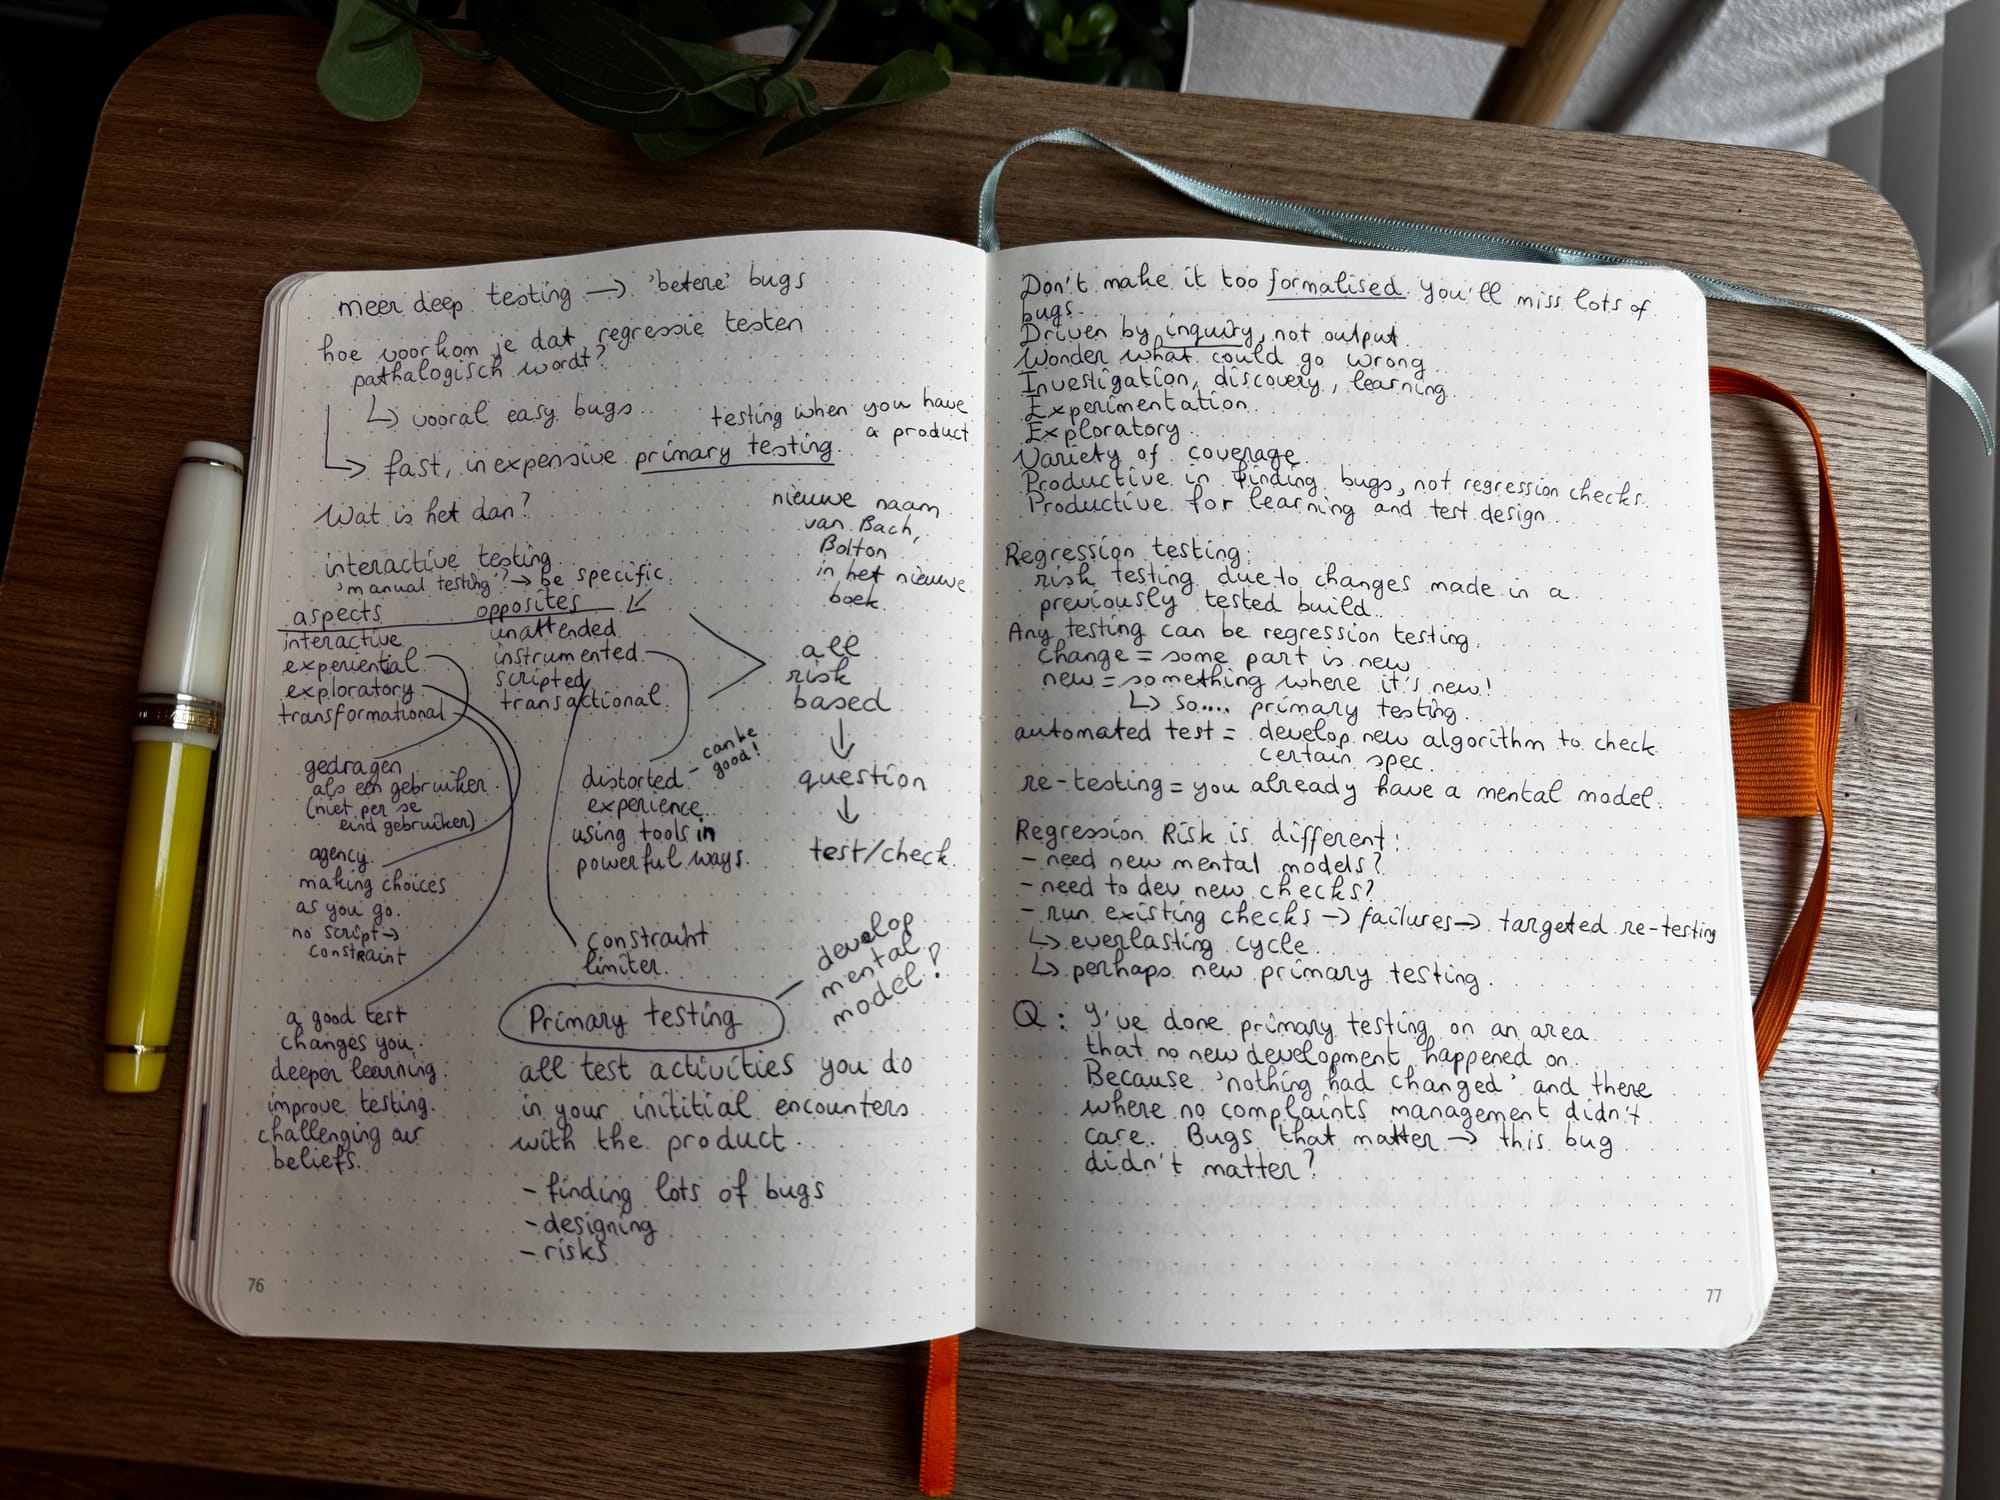 meer deep testing → 'betere' bugs
hoe voorkom je dat regressie testen
pathalogisch wordt?
↳ vooral easy bugs
testing when you have
a product
↳ fast, inexpensive primary testing
Wat is het dan?
nieuwe naam
van Bach,
Bolton
in het nieuwe
boek
interactive testing
'manual testing'? → be specific
aspects opposites
interactive unattended
experiential instrumented
exploratory scripted
transformational transactional
all
risk
based
↓
question
↓
test/check
gedragen
als een gebruiker
(niet per se
eind gebruiker)
agency
making choices
as you go.
no script →
constraint
a good test
changes you.
deeper learning.
improve testing.
challenging our
beliefs.
distorted - can be
good!
experience
using tools in
powerful ways.
constraint
limiter.
Primary testing
develop
mental
model!
all test activities you do
in your initital encounters
with the product.
- finding lots of bugs
- designing
- risks
76
Don't make it too formalised you'll miss lots of
bugs.
Driven by inquiry, not output
Wonder what could go wrong
Investigation, discovery, learning
Experimentation
Exploratory
Variety of coverage
Productive in finding bugs, not regression checks.
Productive for learning and test design
Regression testing:
risk testing due to changes made in a
previously tested build.
Any testing can be regression testing
change = some part is new
new = something where it's new!
↳ so.... primary testing
automated test = develop new algorithm to check
certain spec.
re-testing = you already have a mental model.
Regression Risk is different:
- need new mental models?
- need to dev new checks?
- run existing checks → failures → targeted re-testing
↳ everlasting cycle
↳ perhaps new primary testing.
Q: I've done primary testing on an area
that no new development happened on.
Because 'nothing had changed' and there
where no complaints management didn't
care. Bugs that matter → this bug
didn't matter?
77